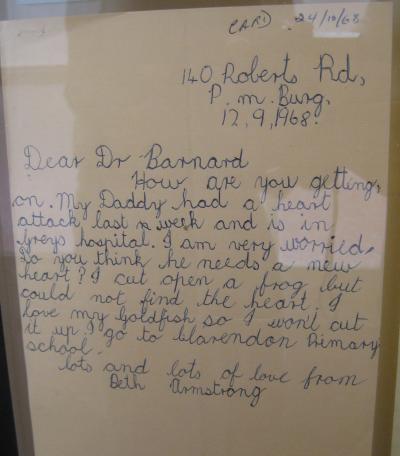 CARD 24/10/68
140 Roberts Rd,
P.m. Burg,
12,9,1968.
Dear Dr Barnard
How are you getting
on. My Daddy had a heart
attack last week and is in
Greys hospital. I am very worried.
Do you think he needs a new
heart? I cut open a frog but
could not find the heart. I
love my Goldfish so I won't cut
it up. I go to Clarendon Primary
school.
lots and lots of love from
Beth Armstrong